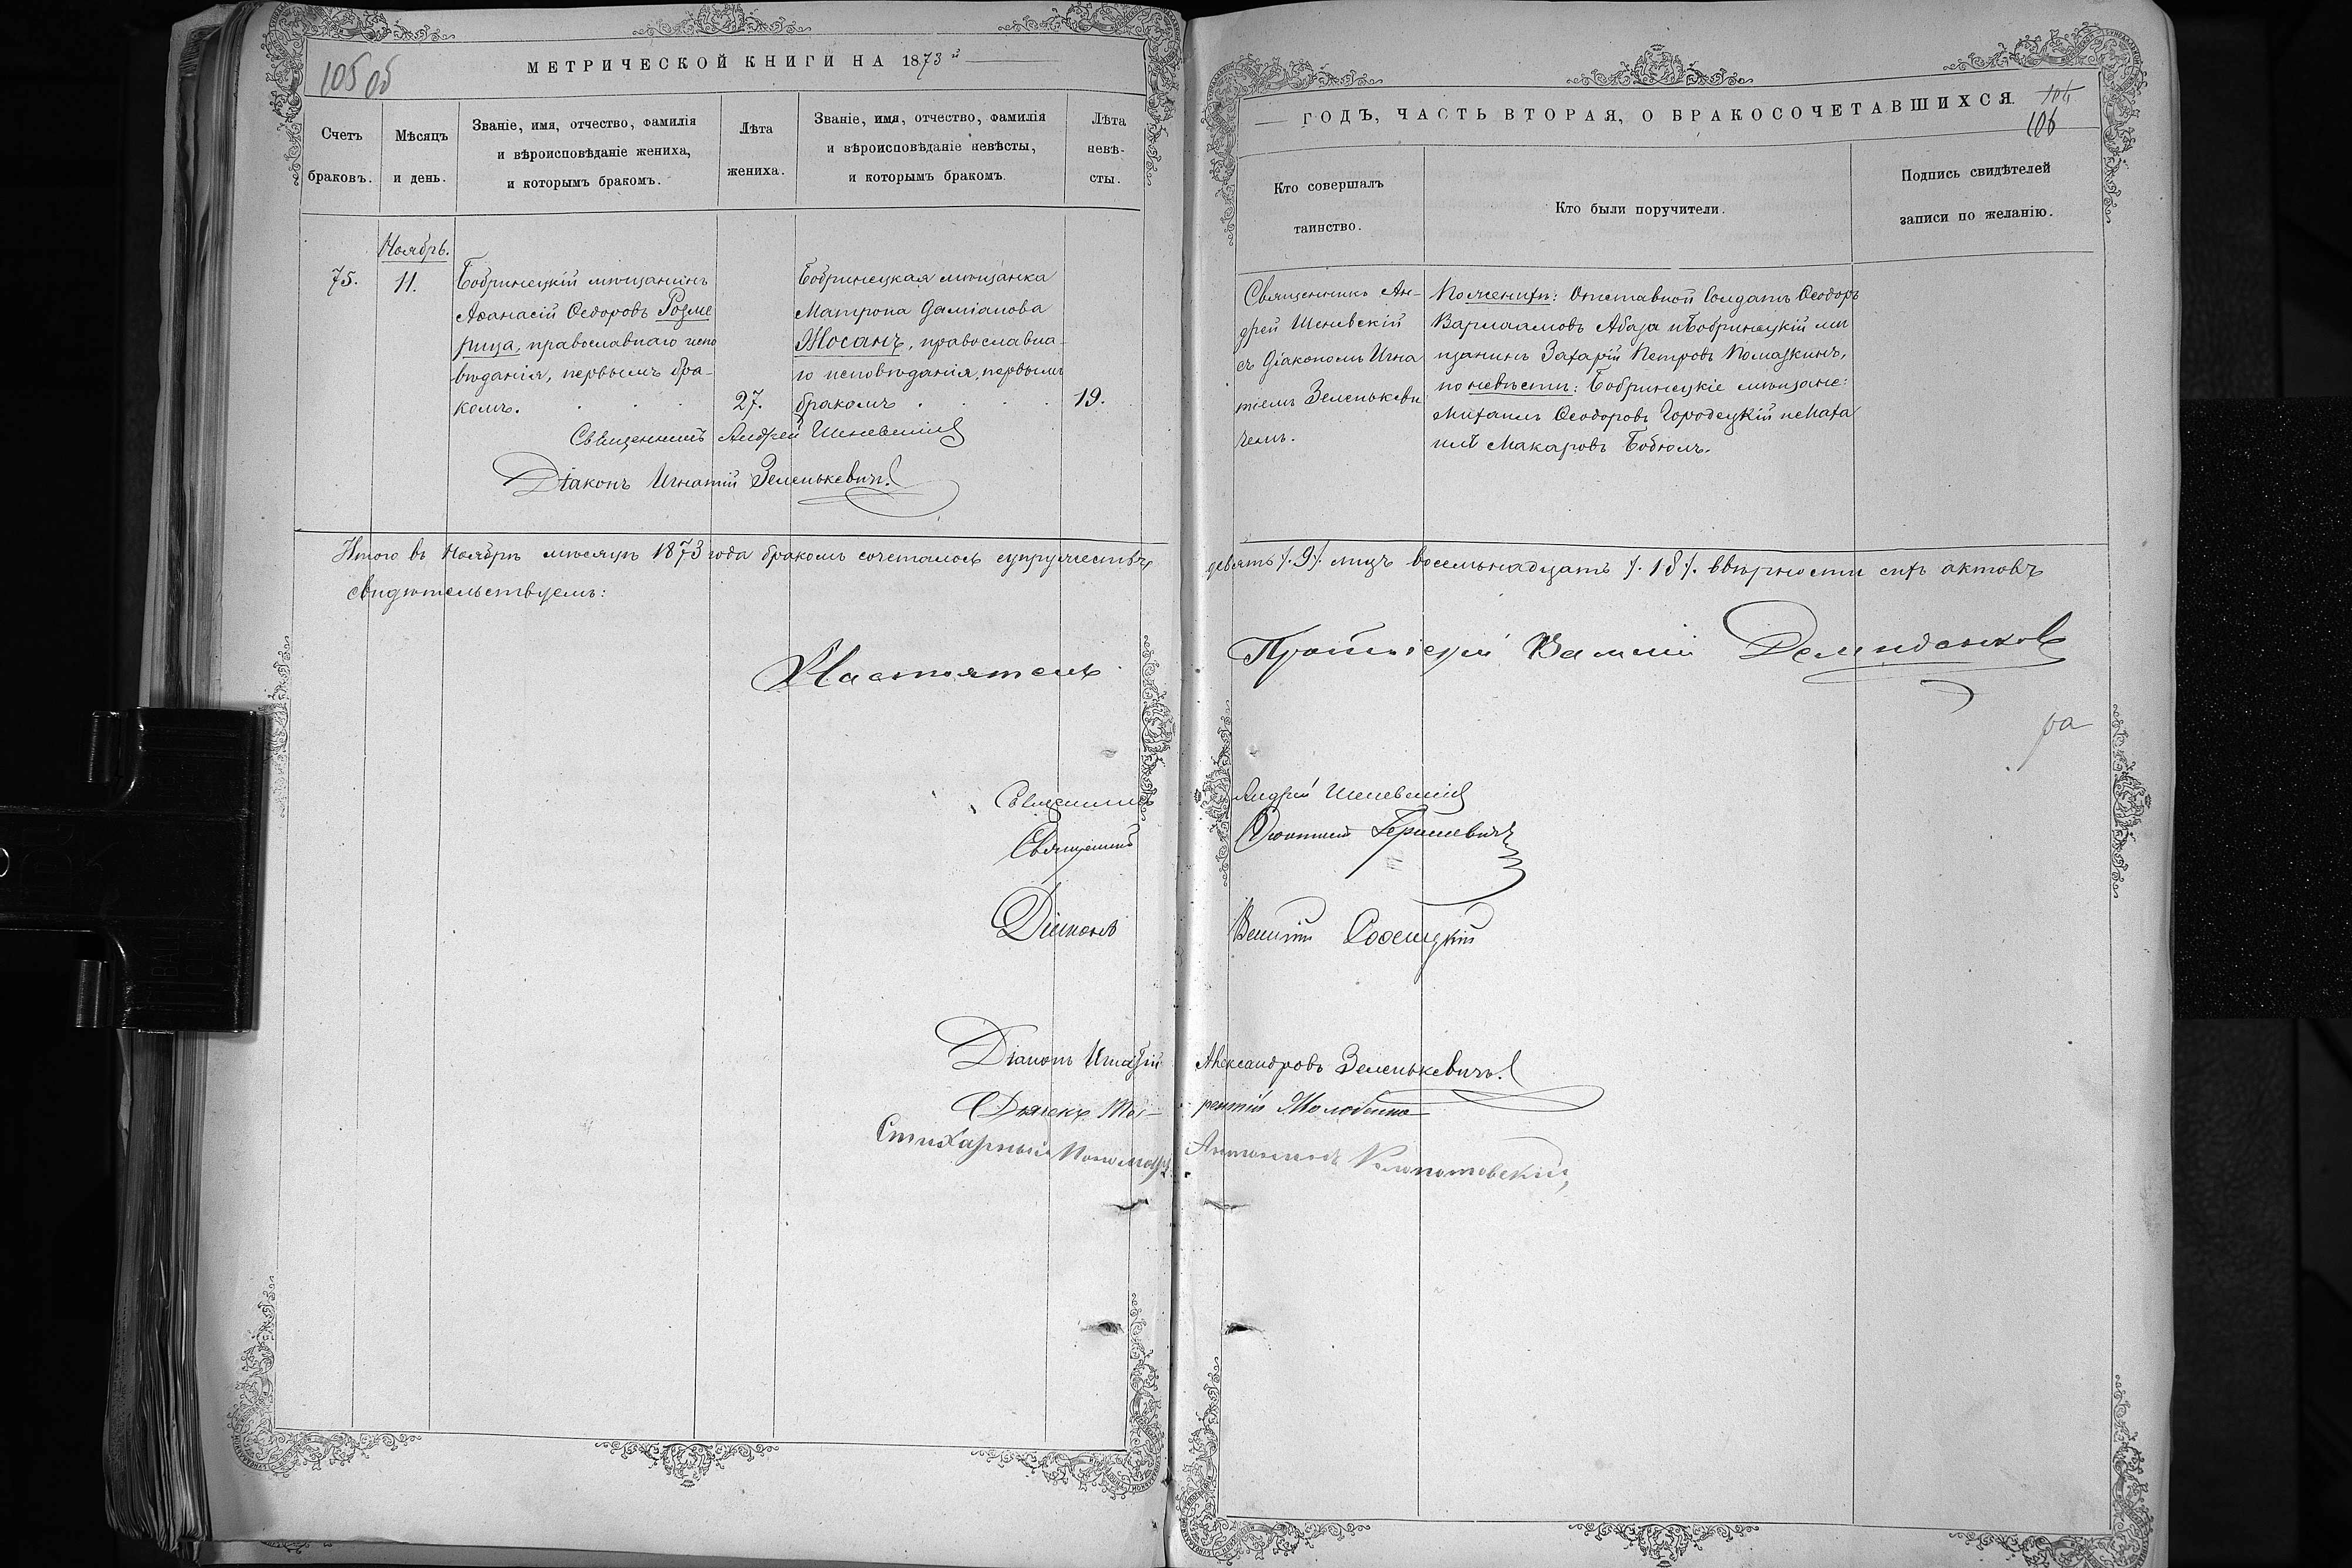 105 об
МЕТРИЧЕСКОЙ КНИГИ НА 1873 й
Счетъ браковъ.
Мѣсяцъ и день.
Званіе, имя, отчество, фамилія
и вѣроисповѣданіе жениха,
и которымъ бракомъ.
Лѣта жениха.
Званіе, имя, отчество, фамилія
и вѣроисповѣданіе невѣсты,
и которымъ бракомъ.
Лѣта невѣ-
сты.
Ноябрь.
75.
11.
Бобринецкій мѣщанинъ
Аѳанасій Ѳедоровъ Розме
рица, православнаго испо
вѣданія, первымъ бра-
комъ.
27.
Бобринецкая мѣщанка
Матрона Даміанова
Мосанъ, православна-
го исповѣданія, первымъ
бракомъ
19.
Священникъ Андрей Шеневскій
Діаконъ Игнатій Зеленькевичъ.
Итого въ Ноябрѣ мѣсяцѣ 1873 года бракомъ сочеталось супружествъ
свидѣтельствуемъ:
Настоятель
Священникъ
Священникъ
Діаконъ
Діаконъ Игнатій
Дьячекъ
Стихарный Пономарь
ГОДЪ, ЧАСТЬ ВТОРАЯ, О БРАКОСОЧЕТАВШИХСЯ.
106
Кто совершалъ
таинство.
Кто были поручители.
Подпись свидѣтелей
записи по желанію.
Священникъ Ан-
дрей Шеневскій
съ Діакономъ Игна
тіемъ Зеленькеви
чемъ.
По женихѣ: Отставной Солдатъ Ѳеодоръ
Варлаамовъ Абаза и Бобринецкій мѣ
щанинъ Захарій Петровъ Помазкинъ,
по невѣстѣ: Бобринецкіе мѣщане:
Михаилъ Ѳеодоровъ Городецкій и Миха
илъ Макаровъ Бобюлъ.
девять /.9/. лицъ восемьнадцать /.18/. ввѣрности сихъ актовъ
Протоіерей Демиденковъ
Андрей Шеневскій
Герашевичъ
Василій
Александровъ Зеленькевичъ.
рентій